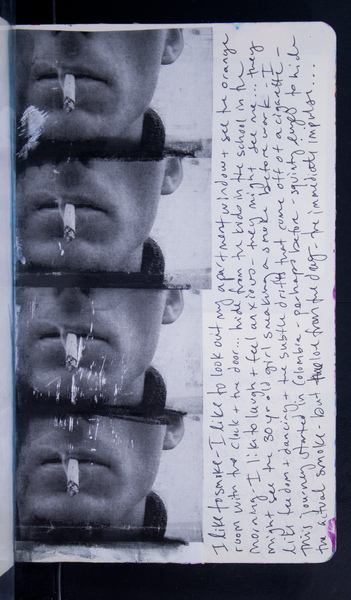 I like to smoke - I like to look out my apartment window + see the orange
room with the clock + the door... hide from the kids in the school in the
morning. I like to laugh + feel anxious - they might see me... they
might see the 30 yr old girl sneaking a smoke before work. I
like freedom + dancing + the subtle drifts that come off of a cigarette -
this journey started in Colombia - perhaps before - squinty eyes to hide
the actual smoke - but the love from the drag - the immediate impulse...